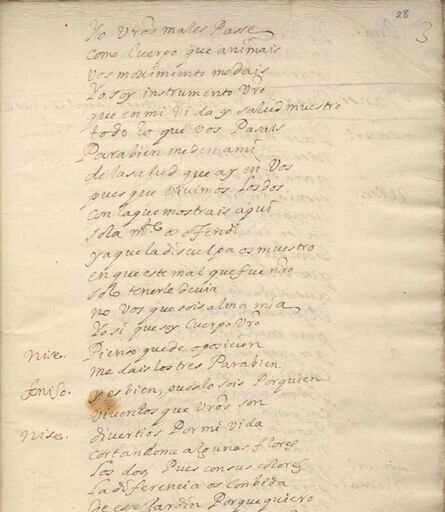 28
3
Yo Vros males Passe
como Cuerpo que animais
vos movimiento me dais
Yo soy instrumento Vro
que en mi Vida y salud muestro
todo lo que vos Pasais
Parabien me den a mi
de la salud que ay en Vos
pues que Vivimos los dos
con la que mostrais aqui
sola mte os ofendi
ya que la disculpa os muestro
en que este mal que fue nro
solo tenerle devia
no Vos que sois alma mia
Yo si que soy Cuerpo Vro
Nise. Pienso que de oposicion
me dais los tres Parabien
feniso. y es bien, pues lo sois Por quien
viventos que Vros son
Nise. divertios Por mi vida
cortandome algunas flores
los dos, Pues con sus colores
la diferencia os conbida
de este Jardin Porque quiero